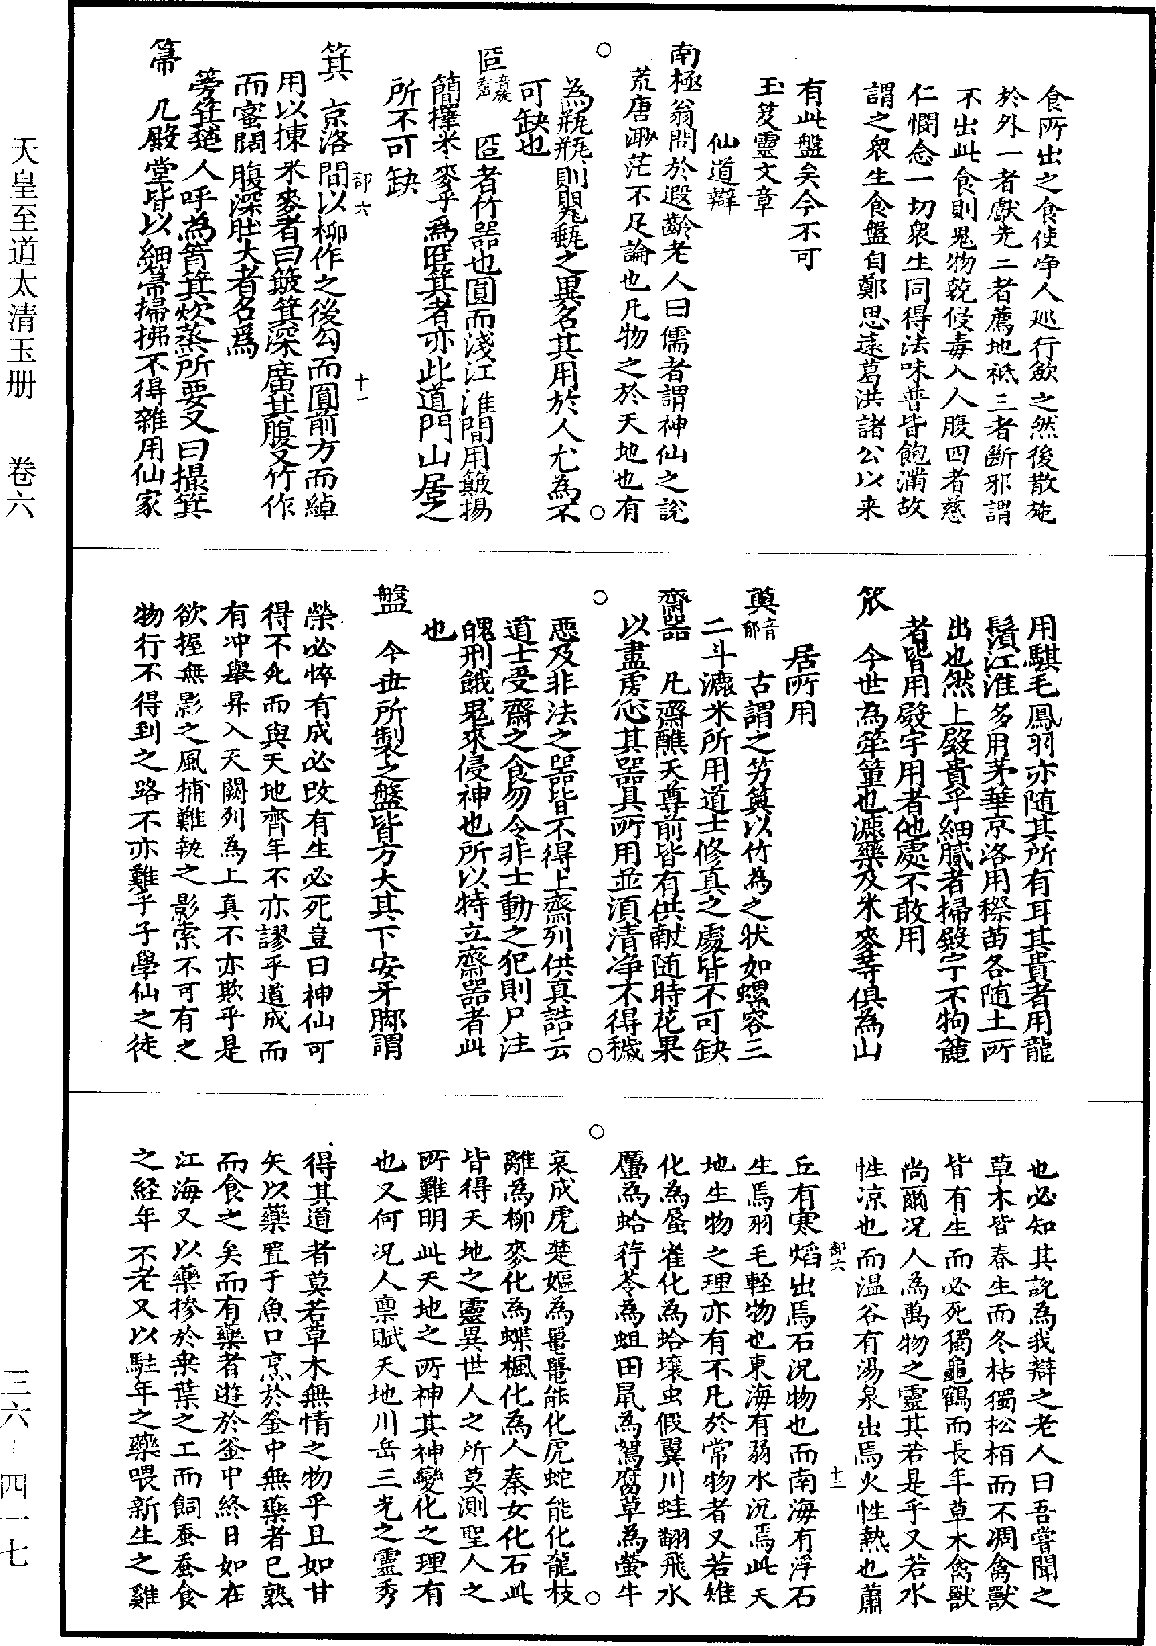 食所出之食使淨人巡行飲之然後散施
於外一者獻先二者薦地祇三者斷邪謂
不出此食則鬼物乾候毒入人腹四者慈
仁憫念一切衆生同得法味普皆飽滿故
謂之衆生食盤自鄭思遠葛洪諸公以来
有此盤矣今不可
玉笈靈文章
仙道辯
南極翁問於遐齡老人曰儒者謂神仙之說
荒唐渺茫不足論也凡物之於天地也有
其用於人尤為不
可缺也
匠者竹器也圓而淺江淮間用簸揚
簡擇米麥乎為匠箕者亦此道門山居之
所不可缺
箕 京洛間以柳作之後勾而圓前方而綽
部六 十一
用以揀米麥者曰簸箕深廣其腹又竹作
而密闊腹深肚大者名為
箒箕越人呼為筲箕炊蒸所要又曰撮箕
箒 凡殿堂皆以細箒掃拂不得雜用仙家
用騏毛鳳羽亦隨其所有耳其貴者用龍
鬚江淮多用茅華京洛用穄苗各隨土所
出也然上殿貴乎細膩者掃殿宇不拘麄
者皆用殿宇用者他處不敢用
今世為箄箽也漉藥及米麥等俱為山
居所用
古謂之竻䉛以竹為之狀如螺容三
二斗漉米所用道士修真之處皆不可缺
齋器 凡齋醮天尊前皆有供獻随時花果
以盡虔心其器具所用並須清净不得穢
惡及非法之器皆不得上齋列供真誥云
道士受齋之食勿令非士動之犯則尸注
魄刑餓鬼來侵神也所以特立齋器者此
也
盤 今世所製之盤皆方大其下安牙脚謂
榮必悴有成必敗有生必死豈曰神仙可
得不死而與天地齊年不亦謬乎道成而
有冲舉昇入天闕列為上真不亦欺乎是
欲握無影之風捕難執之影索不可有之
物行不得到之路不亦難乎子學仙之徒
也必知其說為我辯之老人曰吾嘗聞之
草木皆春生而冬枯獨松栢而不凋禽獸
皆有生而必死獨龜鶴而長年草木禽獸
尚爾况人為萬物之靈其若是乎又若水
性凉也而温谷有湯泉出焉火性熱也蕭
部六 十二
丘有寒熖出焉石沉物也而南海有浮石
生焉羽毛輕物也東海有弱水沉焉此天
地生物之理亦有不凡於常物者又若雉
化為蜃雀化為蛤壤虫假翼川蛙翻飛水
蠆為蛤荇苓為蛆田鼠為鴽腐草為螢牛
哀成虎楚嫗為黿黿能化虎蛇能化龍枝
離為柳麥化為蝶楓化為人秦女化石此
皆得天地之靈異世人之所莫測聖人之
所難明此天地之所神其神變化之理有
也又何况人禀賦天地川岳三光之靈秀
得其道者莫若草木無情之物乎且如甘
矢以藥置于魚口烹於釜中無藥者已熟
而食之矣而有藥者遊於釜中終日如在
江海又以藥摻於桒葉之工而飼蚕蚕食
之経年不老又以駐年之藥喂新生之雞
天皇至道太清玉册 卷六
三六-四一七